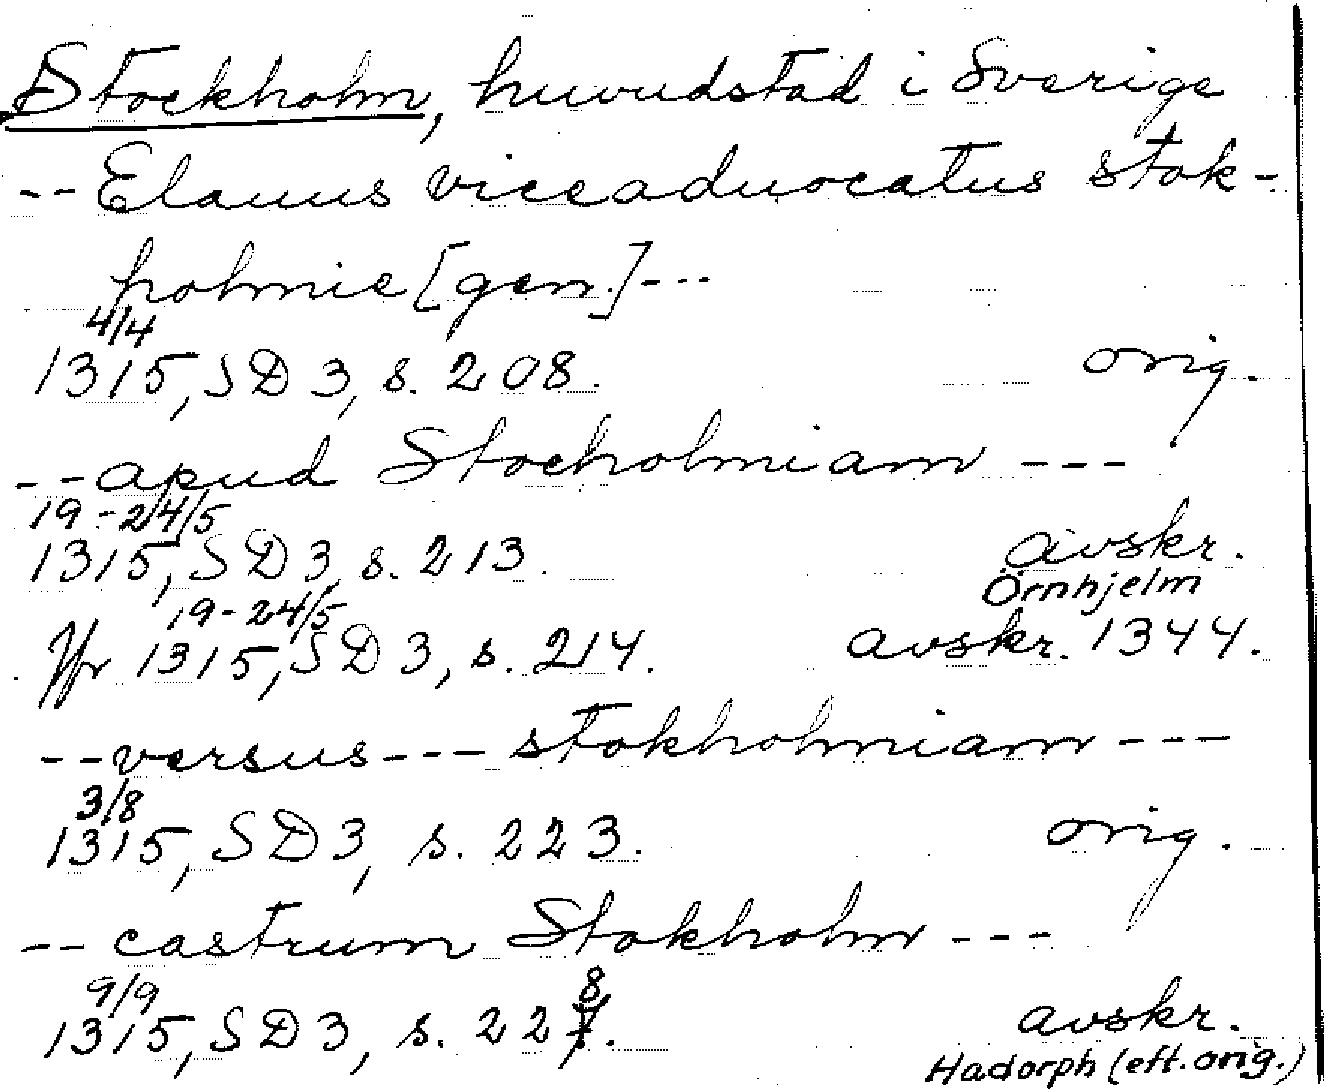 Stockholm, huvudstad i Sverige
-- Elauus viceaduocatus stok-
holmie [gen.] ---
4/4
1315, SD 3, s. 208. orig.
-- apud Stocholmiam ---
19-24/5
1315, SD 3, s. 213. avskr.
Örnhjelm
19-24/5
Jfr 1315, SD 3, s. 214. avskr. 1344.
-- versus --- stokholmiam ---
3/8
1315, SD 3, s. 223. orig.
-- castrum Stokholm ---
9/9 8
1315, SD 3, s. 227. avskr.
Hadorph (eft. orig.)